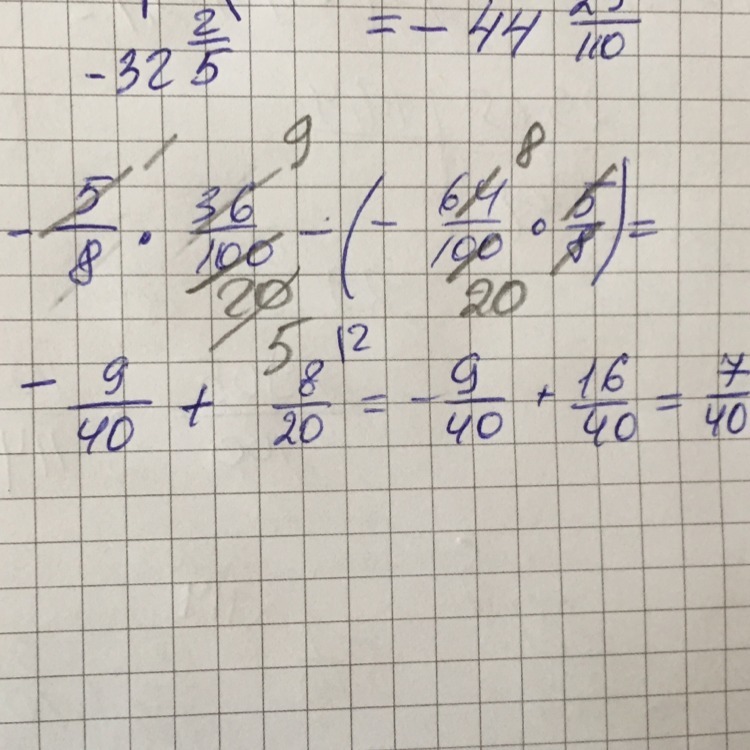 -32 2/5 = - 44 /110
9 8
- 5/8 · 36/100 - (- 64/100 · 5/8) =
20 20
5
- 9/40 + 8/20 |2 = - 9/40 + 16/40 = 7/40